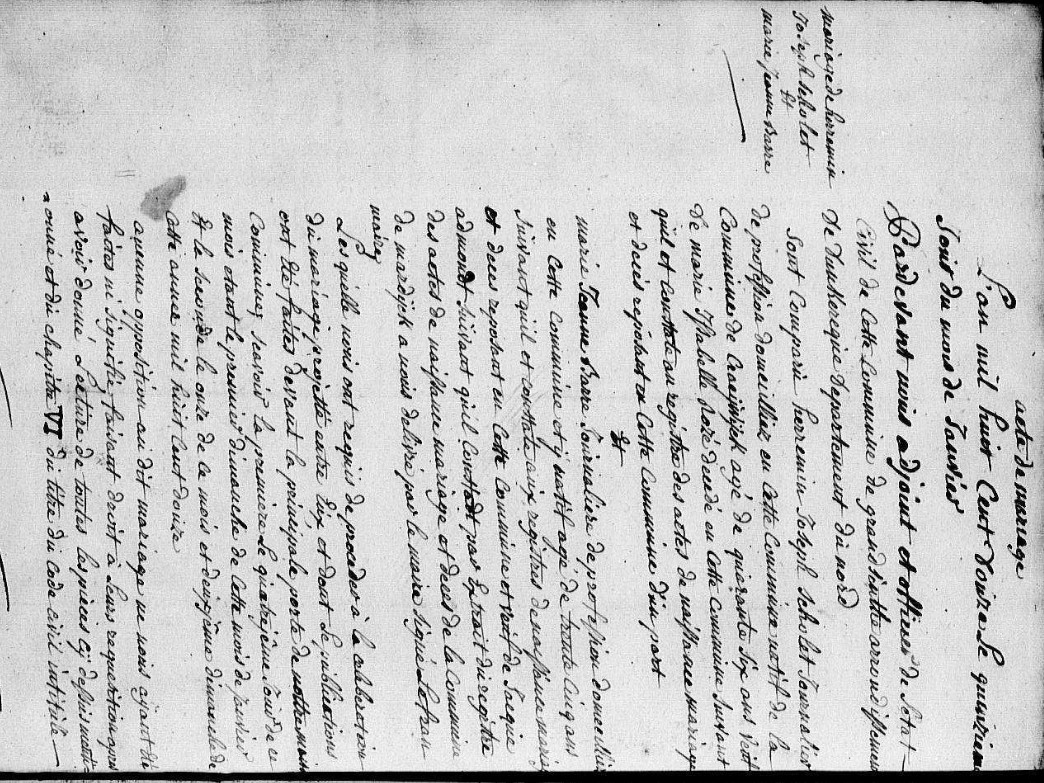 mariage de herremin
Joseph Scholet
Et
marie Jeanne Barre
acte de mariage
L'an mil huit Cent Douze Le quinzieme
Jour du mois de Janvier
Pardevant nous adjoint et officier de L'etat
Civil de Cette Commune de grandsinthe arrondissement
De Dunkerque Departement du nord
Sont Comparü herremin Joseph Scholet Journalier
De profession domeiillier en Cette Commune natif de la
Commune de Craeijwijck agé de quarante Six ans Veuf
De marie Isabelle decedé en Cette Commune Suivant
quil et Constate au registre des actes de naissance mariage
et decès reposant en Cette Commune d'üne part
Et
marie Jeanne Barre Journaliere de profession domeeillie
en Cette Commune et y natif agé de trente Cinq ans
Suivant quil et constate aux registres de naissance mariag
et deces reposant en Cette Commune et Veuf de Jaeque
admondt Suivant qu'il Constadt par Extrait du registre
des actes de naissance mariage et deces de la Commune
De mardijck a nous delivré par le maire signé
maire
Les quelle nous ont requis de proceder à la celebration
du mariage projetté entre Eux et dont Le publications
ont été faites devant la principale porte de nottre
Commune, Savoir la premiere Le quatrejême Jour de ce
mois etant le premier dimanche de Cette mois de
Et la Seconde le onze de ce mois et deuxjême dimanche de
Cette anne mil hüit Cent douze
aucune opposition au dit mariage ne nous ayant été
faites ni signifie, faisant droit à Leurs requisition apres
avoir donné Lecture de toutes les pieces cij dessus menti
onné et du chapitre VI du titre dü Code civil intitülé